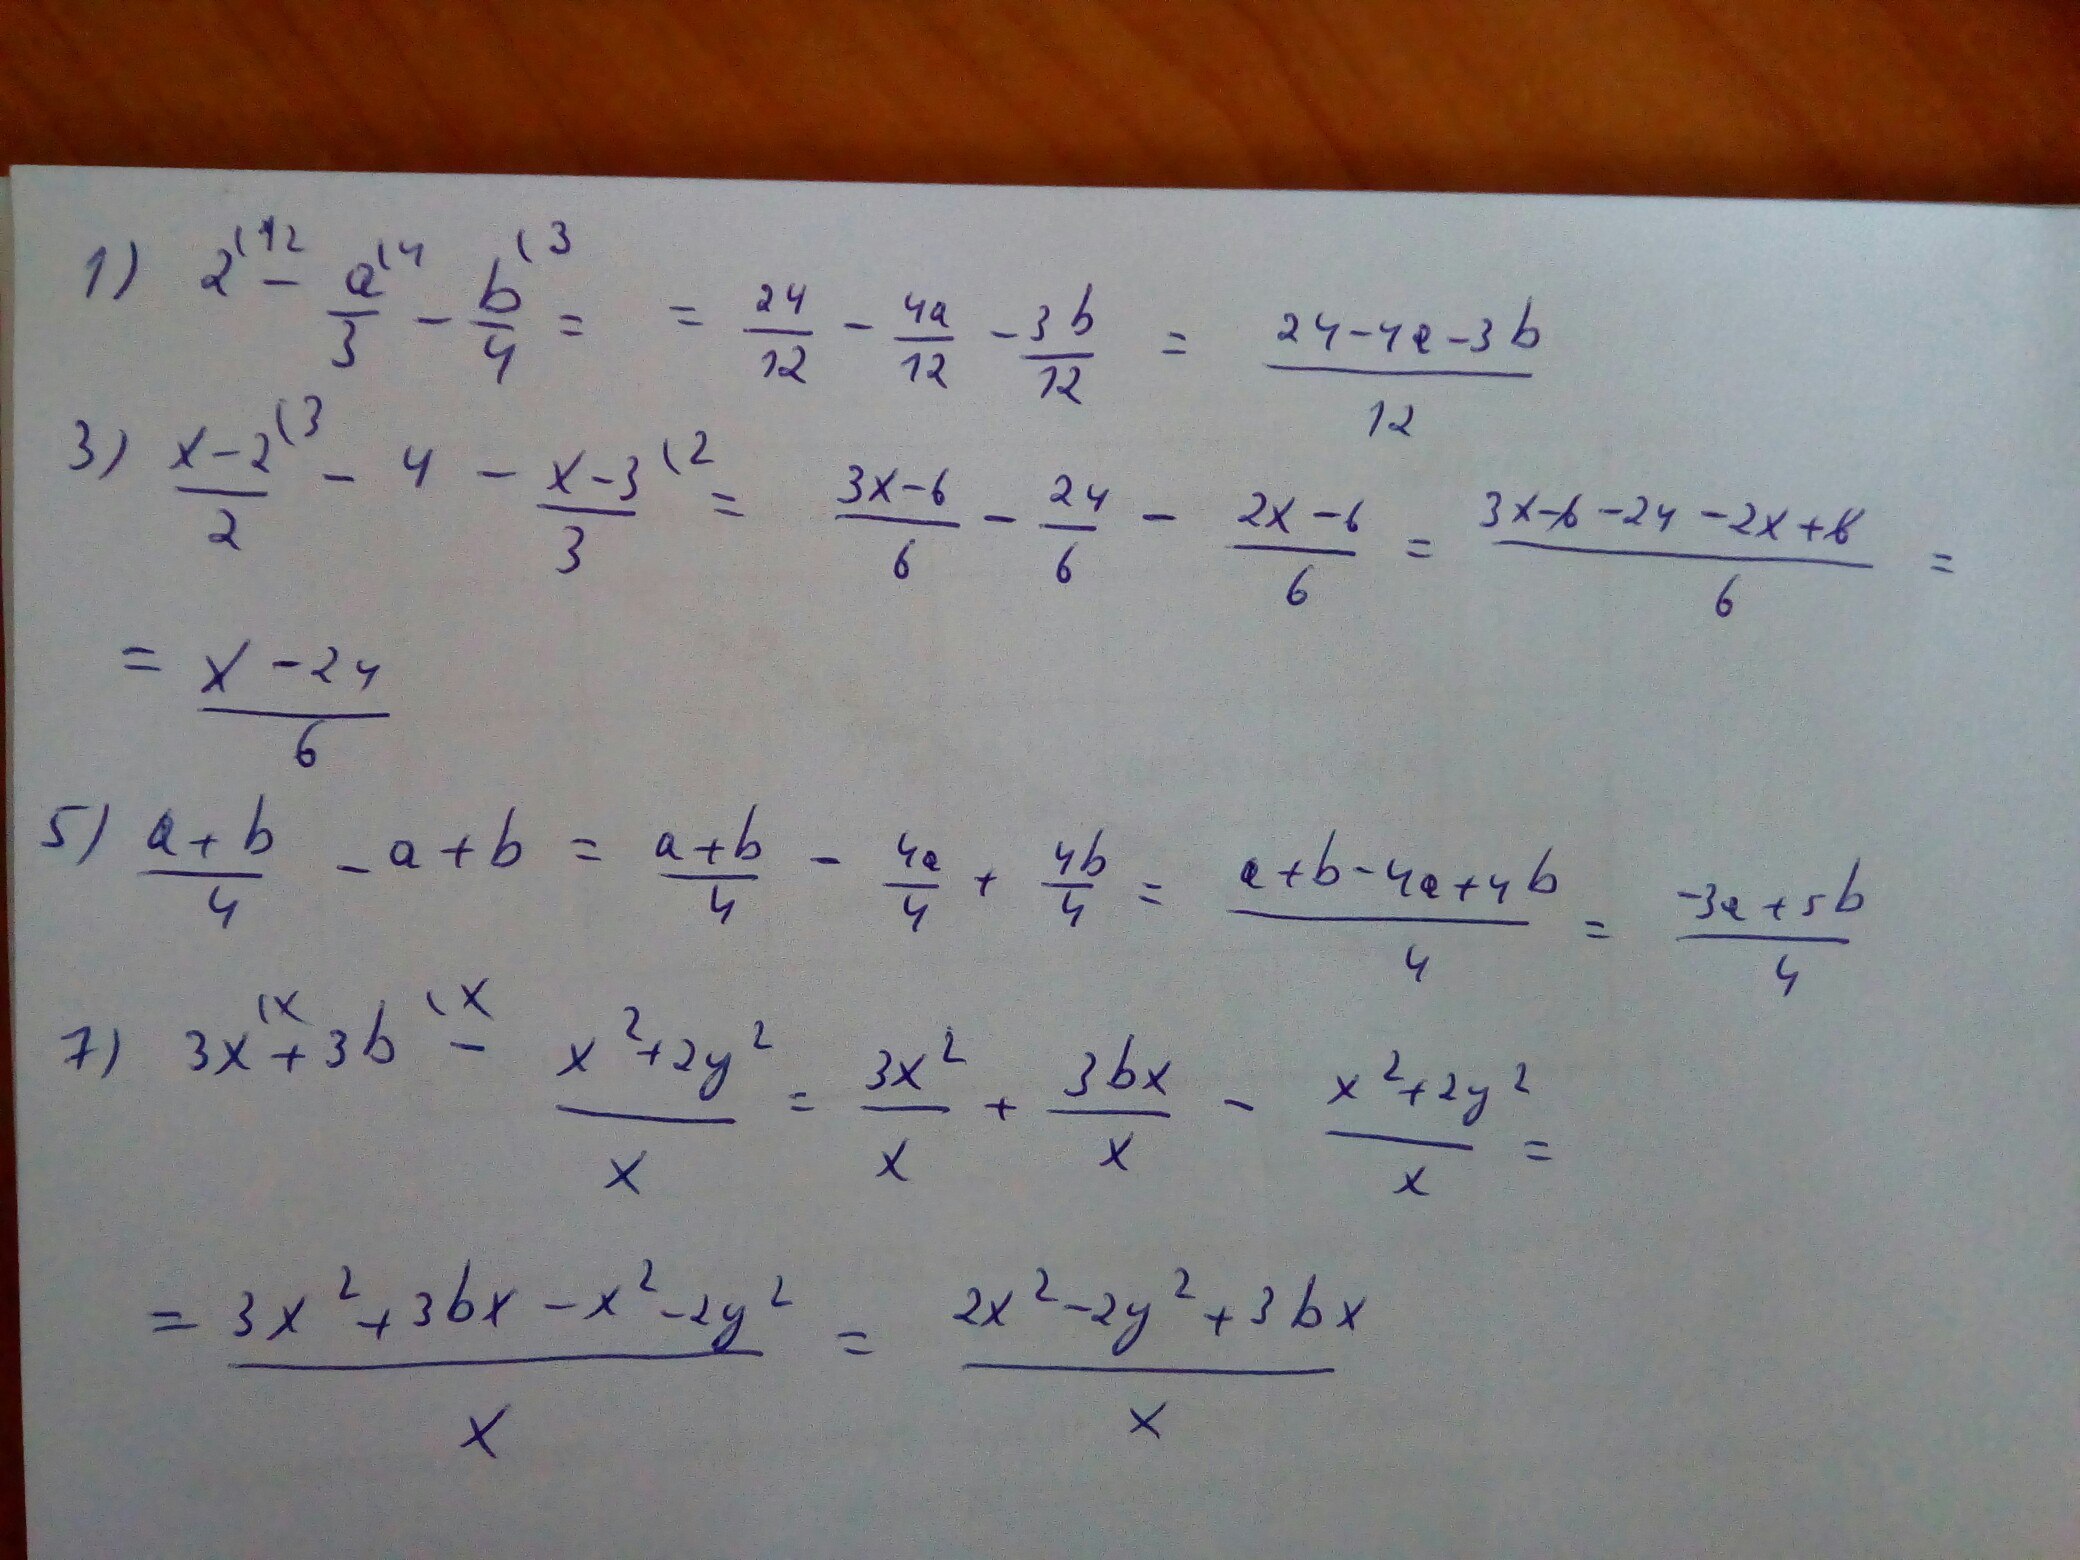 1) 2^(12 - a^(4/3 - b^(3/4 = = 24/12 - 4a/12 - 3b/12 = (24-4a-3b)/12
3) (x-2)^(3/2 - 4 - (x-3)^(2/3 = (3x-6)/6 - 24/6 - (2x-6)/6 = (3x-6-24-2x+6)/6 =
= (x-24)/6
5) (a+b)/4 - a+b = (a+b)/4 - 4a/4 + 4b/4 = (a+b-4a+4b)/4 = (-3a+5b)/4
7) 3x^(x + 3b^(x - (x²+2y²)/x = 3x²/x + 3bx/x - (x²+2y²)/x =
= (3x²+3bx-x²-2y²)/x = (2x²-2y²+3bx)/x